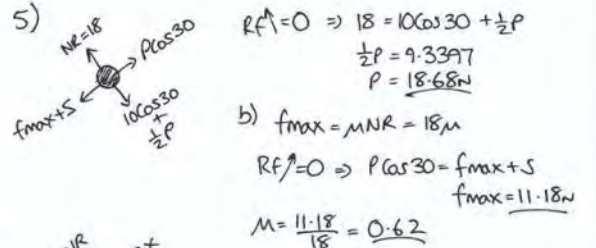 5)
NR=18
PCos30
fmax+5
10Cos30
+
½P
Rf↑=0 => 18 = 10Cos30 + ½P
½P = 9.3397
P = 18.68N
b) fmax = μNR = 18μ
Rf↗=0 => PCos30 = fmax+5
fmax = 11.18N
μ = 11.18/18 = 0.62